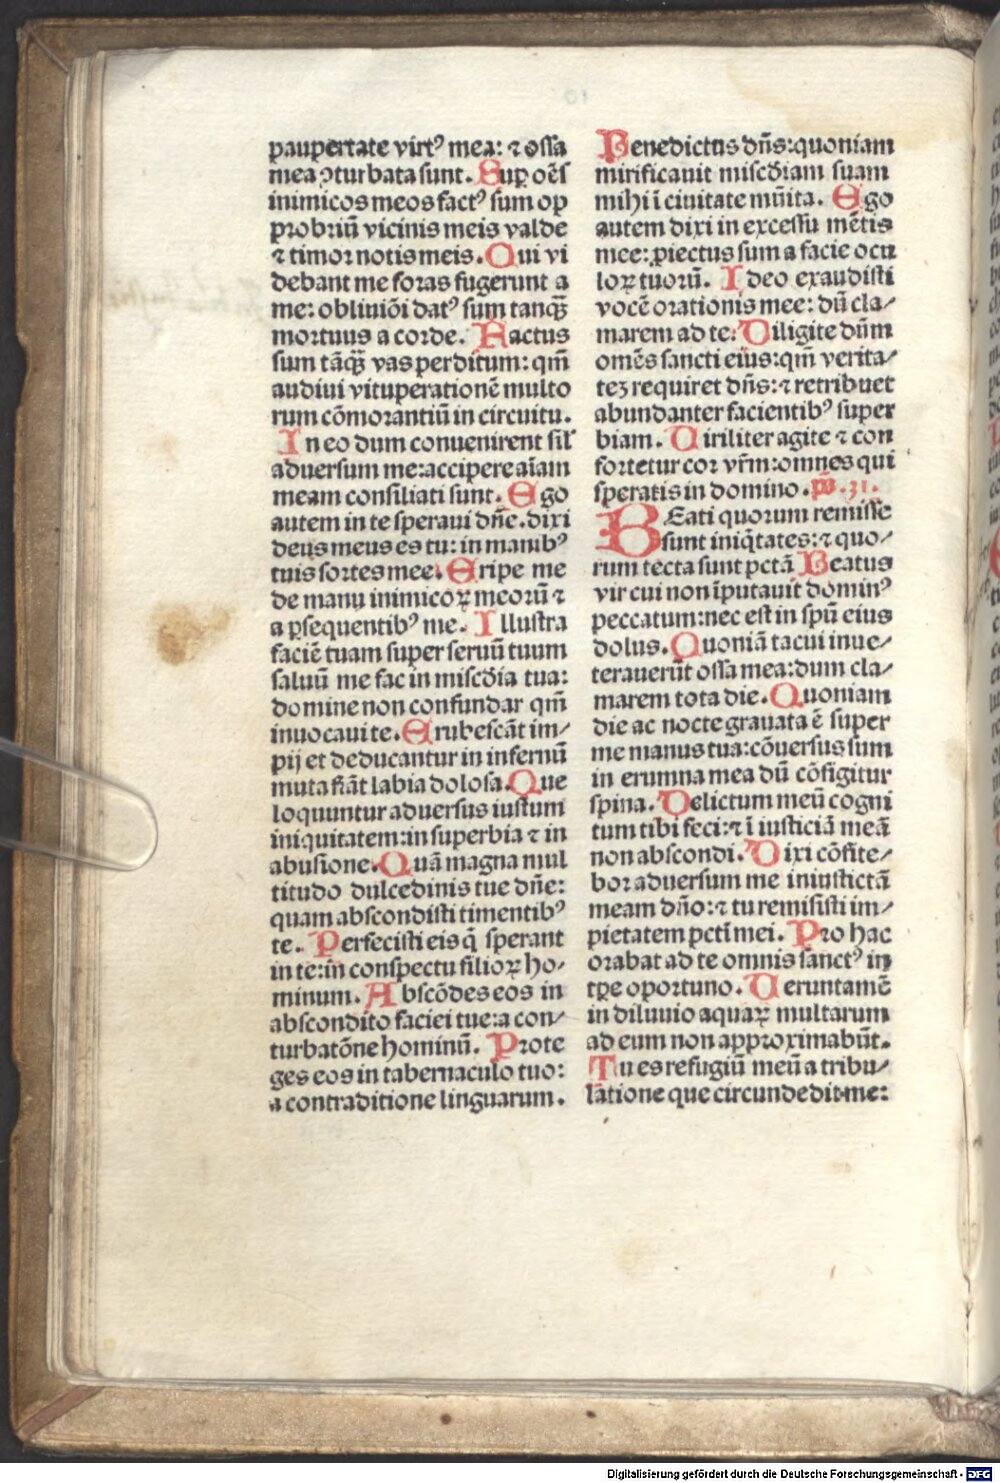 paupertate virtꝰ mea: ⁊ ossa
mea ꝯturbata sunt. Sup oe͂s
inimicos meos factꝰ sum op
probriū vicinis meis valde
⁊ timor notis meis. Qui vi
debant me foras fugerunt a
me: obliuiōi datꝰ sum tanqꝫ
mortuus a corde. Factus
sum tāqꝫ vas perditum: qm̄
audiui vituperationē multo
rum cōmorantiū in circuitu.
In eo dum conuenirent sil'
aduersum me: accipere aīam
meam consiliati sunt. Ego
autem in te speraui dn̄e. dixi
deus meus es tu: in manibꝰ
tuis sortes mee. Eripe me
de manu inimicoꝝ meorū ⁊
a ꝑsequentibꝰ me. Illustra
faciē tuam super seruū tuum
saluū me fac in misc̄dia tua:
domine non confundar qm̄
inuocaui te. Erubescāt im⸗
pij et deducantur in infernū
muta fiāt labia dolosa. Que
loquuntur aduersus iustum
iniquitatem: in superbia ⁊ in
abusione. Quā magna mul
titudo dulcedinis tue dn̄e:
quam abscondisti timentibꝰ
te. Perfecisti eis q̄ sperant
in te: in conspectu filioꝝ ho⸗
minum. Abscōdes eos in
abscondito faciei tue: a con⸗
turbatōne hominū. Prote
ges eos in tabernaculo tuo:
a contraditione linguarum.
Benedictus dn̄s: quoniam
mirificauit misc̄diam suam
mihi ī ciuitate mūita. Ego
autem dixi in excessu mētis
mee: ꝓiectus sum a facie ocu
loꝝ tuorū. Ideo exaudisti
vocē orationis mee: dū cla⸗
marem ad te. Diligite dn̄m
omēs sancti eius: qm̄ verita⸗
teꝫ requiret dn̄s: ⁊ retribuet
abundanter facientibꝰ super
biam. Uiriliter agite ⁊ con
fortetur cor vr̄m: omnes qui
speratis in domino. ps. 31.
BEati quorum remisse
sunt iniq̄tates: ⁊ quo⸗
rum tecta sunt pctā Beatus
vir cui non īputauit dominꝰ
peccatum: nec est in spū eius
dolus. Quoniā tacui inue⸗
terauerūt ossa mea: dum cla⸗
marem tota die. Quoniam
die ac nocte grauata ē super
me manus tua: cōuersus sum
in erumna mea dū cōfigitur
spina. Delictum meū cogni
tum tibi feci: ⁊ ī iusticiā meā
non abscondi. Dixi cōfite⸗
bor aduersum me iniustictā
meam dn̄o: ⁊ tu remisisti im⸗
pietatem pctī mei. Pro hac
orabat ad te omnis sanctꝰ in
tp̄e oportuno. Ueruntamē
in diluuio aquaꝝ multarum
ad eum non approximabūt.
Tu es refugiū meū a tribu⸗
latione que circundedit me:
Digitalisierung gefördert durch die Deutsche Forschungsgemeinschaft - DFG